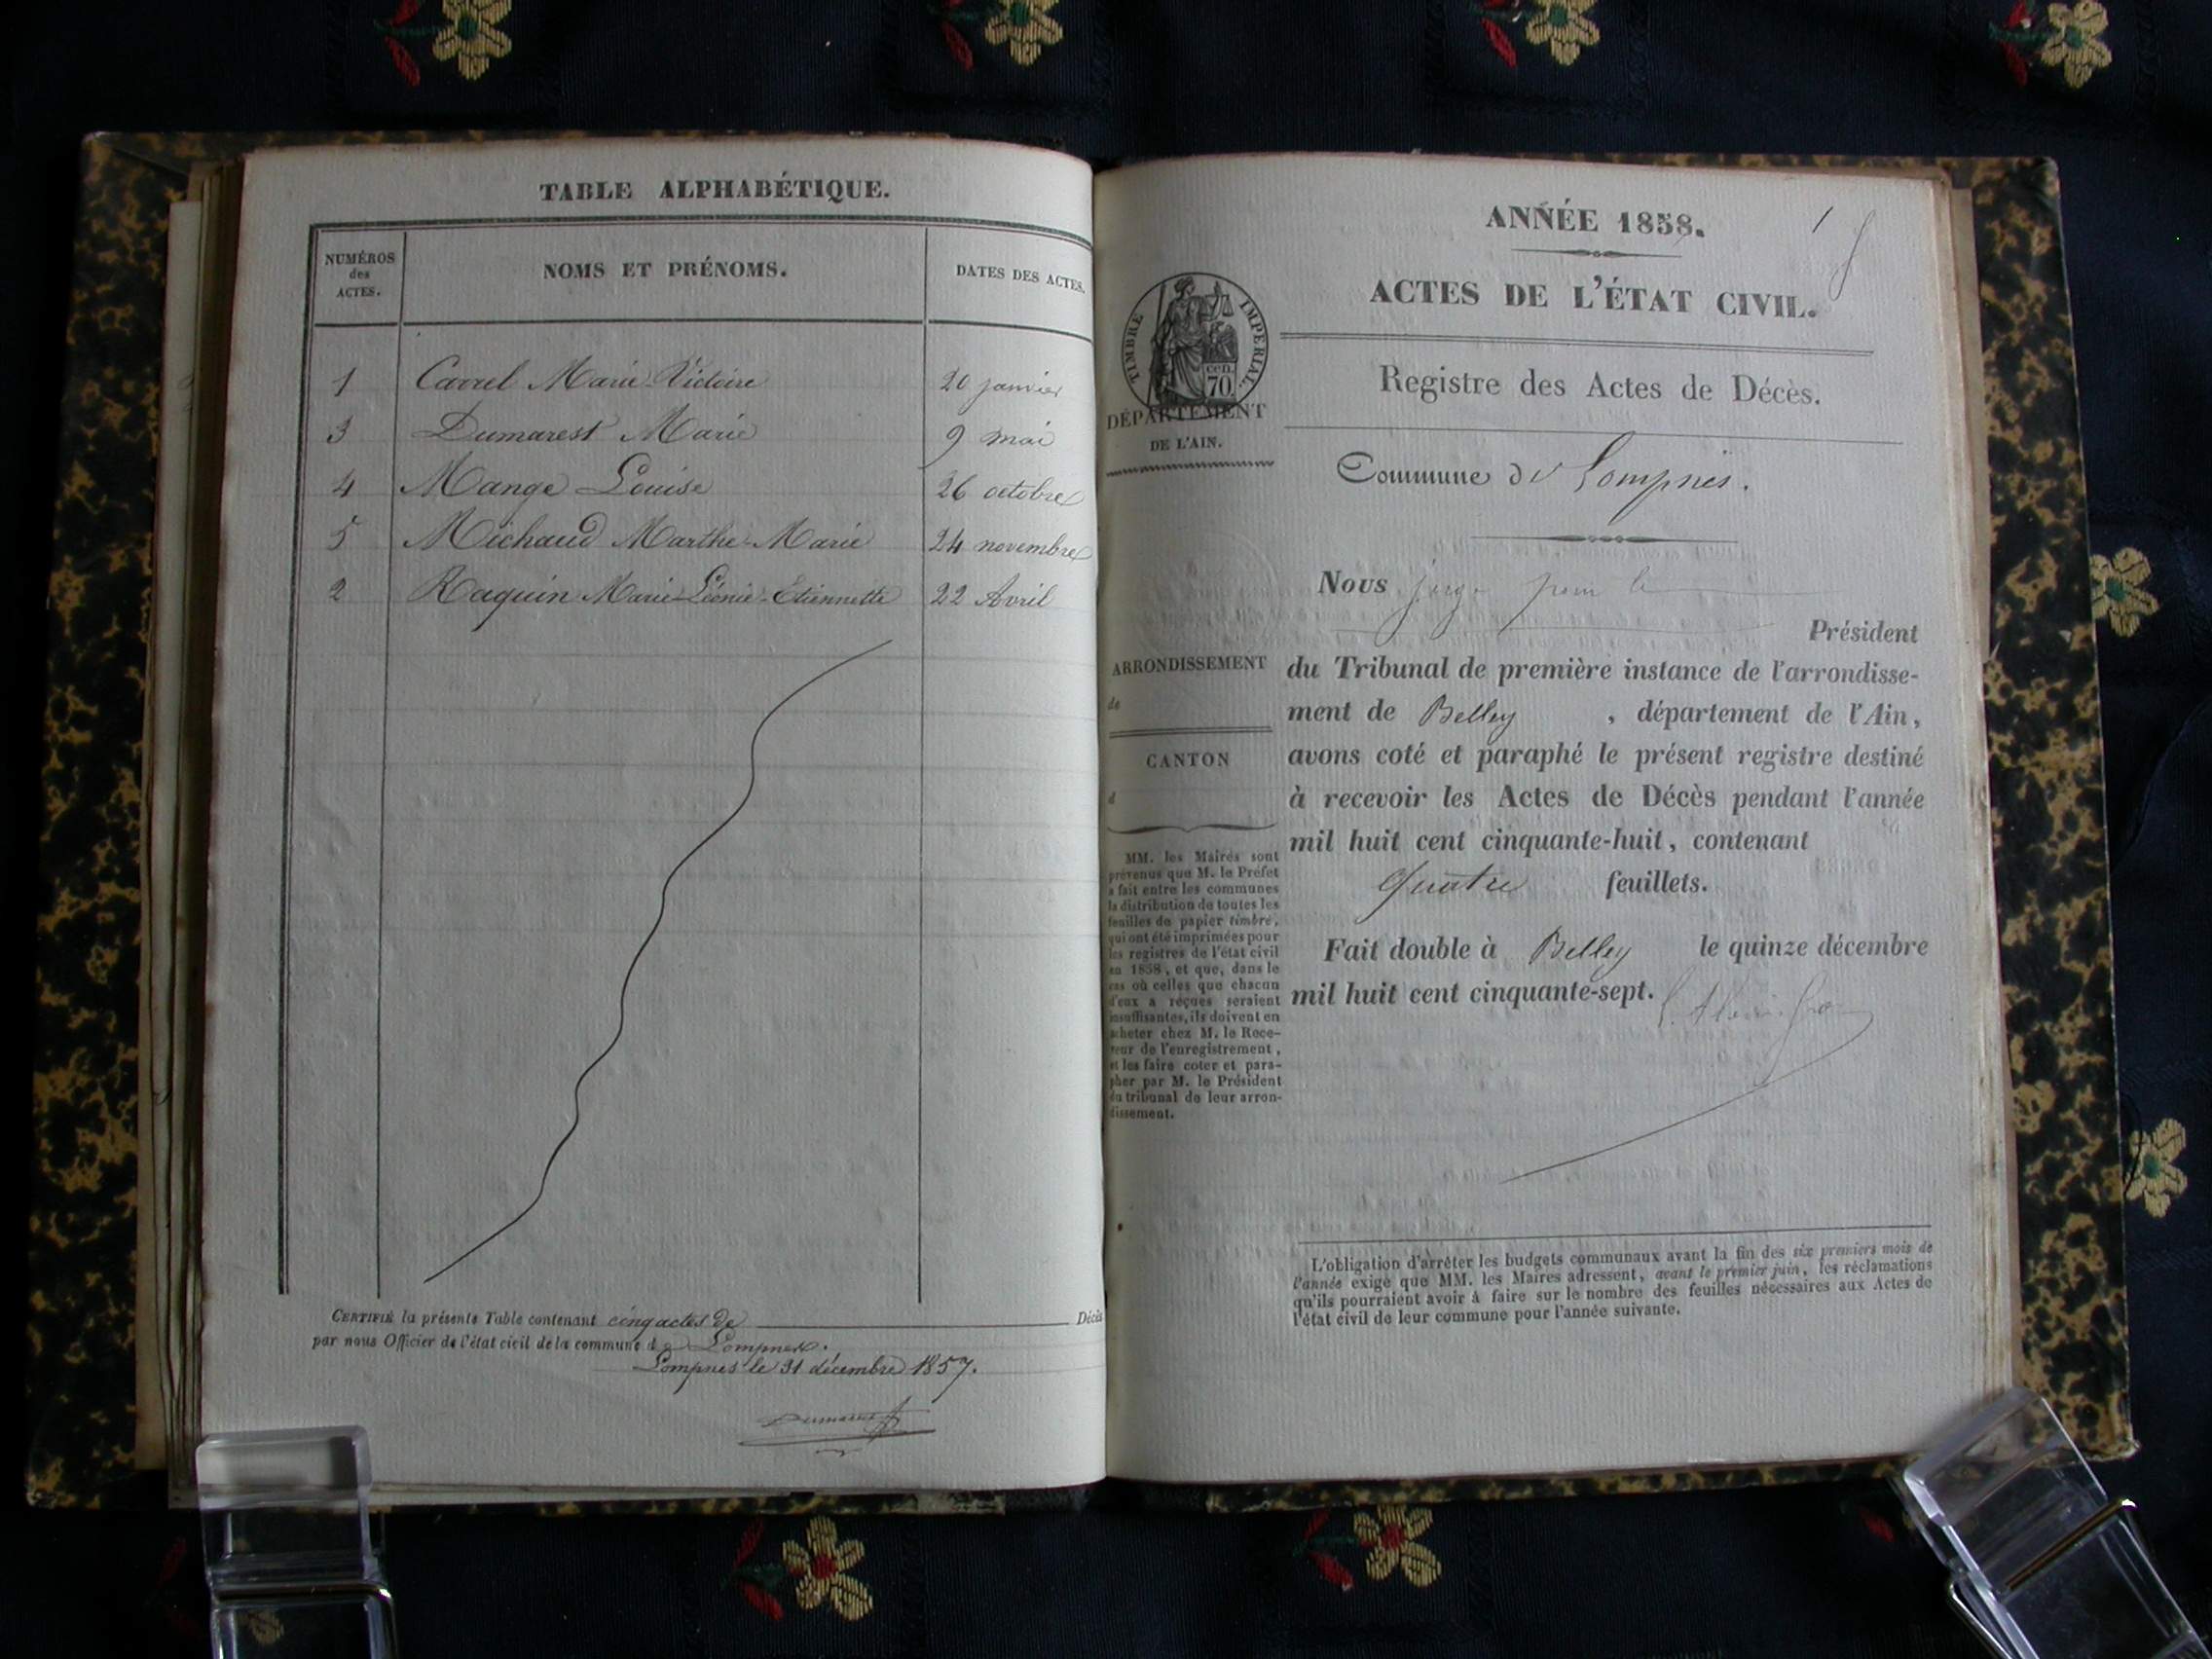 TABLE ALPHABÉTIQUE.
NUMÉROS des ACTES. NOMS ET PRÉNOMS. DATES DES ACTES.
1 Carrel Marie-Victoire 20 janvier
3 Dumarest Marie 9 mai
4 Mange Louise 26 octobre
5 Michaud Marthe-Marie 24 novembre
2 Raquin Marie-Léonie-Etiennette 22 Avril
CERTIFIÉ la présente Table contenant cinq actes de Décès
par nous Officier de l'état civil de la commune de Lompnes.
Lompnes le 31 décembre 1857.
Dumarest
1
ANNÉE 1858.
ACTES DE L'ÉTAT CIVIL.
TIMBRE IMPÉRIAL.
cen. 70
DÉPARTEMENT
DE L'AIN.
Registre des Actes de Décès.
Commune de Lompnes.
Nous juge pour le
Président
du Tribunal de première instance de l'arrondisse-
ment de Belley , département de l'Ain,
avons coté et paraphé le présent registre destiné
à recevoir les Actes de Décès pendant l'année
mil huit cent cinquante-huit, contenant
Quatre feuillets.
Fait double à Belley le quinze décembre
mil huit cent cinquante-sept.
ARRONDISSEMENT
de
CANTON
d
MM. les Maires sont
prévenus que M. le Préfet
a fait entre les communes
la distribution de toutes les
feuilles de papier timbré,
qui ont été imprimées pour
les registres de l'état civil
en 1858, et que, dans le
cas où celles que chacun
d'eux a reçues seraient
insuffisantes, ils doivent en
acheter chez M. le Rece-
veur de l'enregistrement,
et les faire coter et para-
pher par M. le Président
du tribunal de leur arron-
dissement.
L'obligation d'arrêter les budgets communaux avant la fin des six premiers mois de
l'année exige que MM. les Maires adressent, avant le premier juin, les réclamations
qu'ils pourraient avoir à faire sur le nombre des feuilles nécessaires aux Actes de
l'état civil de leur commune pour l'année suivante.